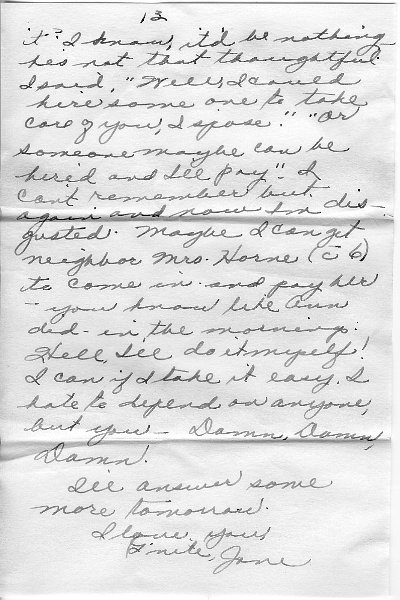 13
it? I know, it'd be nothing
he's not that thoughtful.
I said, "Well, I could
hire some one to take
care of you, I spose." "Or
someone maybe can be
hired and I'll pay". I
can't remember but
again and now I'm dis-
gusted. Maybe I can get
neighbor Mrs. Horne (c̄ 6)
to come in and pay her
- you know like Ann
did - in the morning.
Hell, I'll do it myself!
I can if I take it easy. I
hate to depend on anyone,
but you - Damn, Damn,
Damn!
I'll answer some
more tomorrow.
I love you,
G'nite, Jane